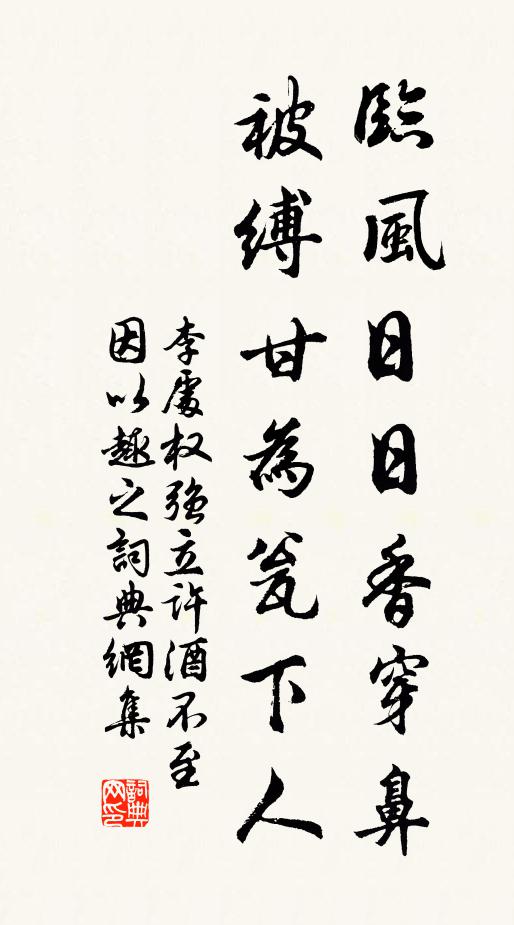 臨風日日香穿鼻
被縛甘為瓮下人
李處权强立許酒不至
因以趣之詞典網集
詞典網印